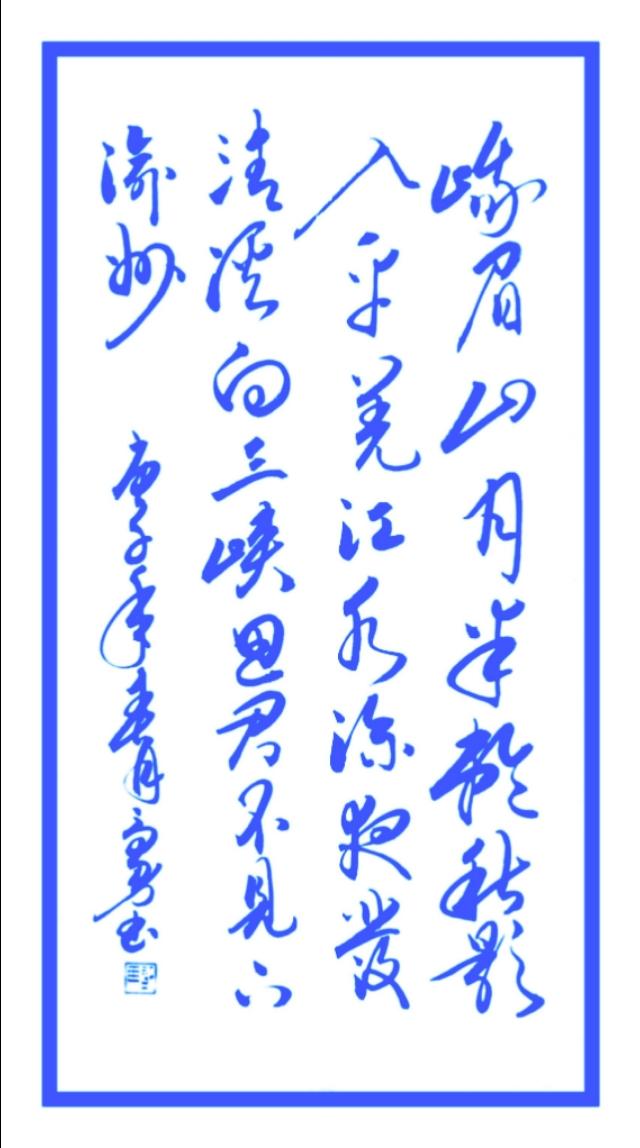 峨眉山月半輪秋影
入平羌江水流夜發
清溪向三峡思君不見下
渝州
庚子年春月高勇书